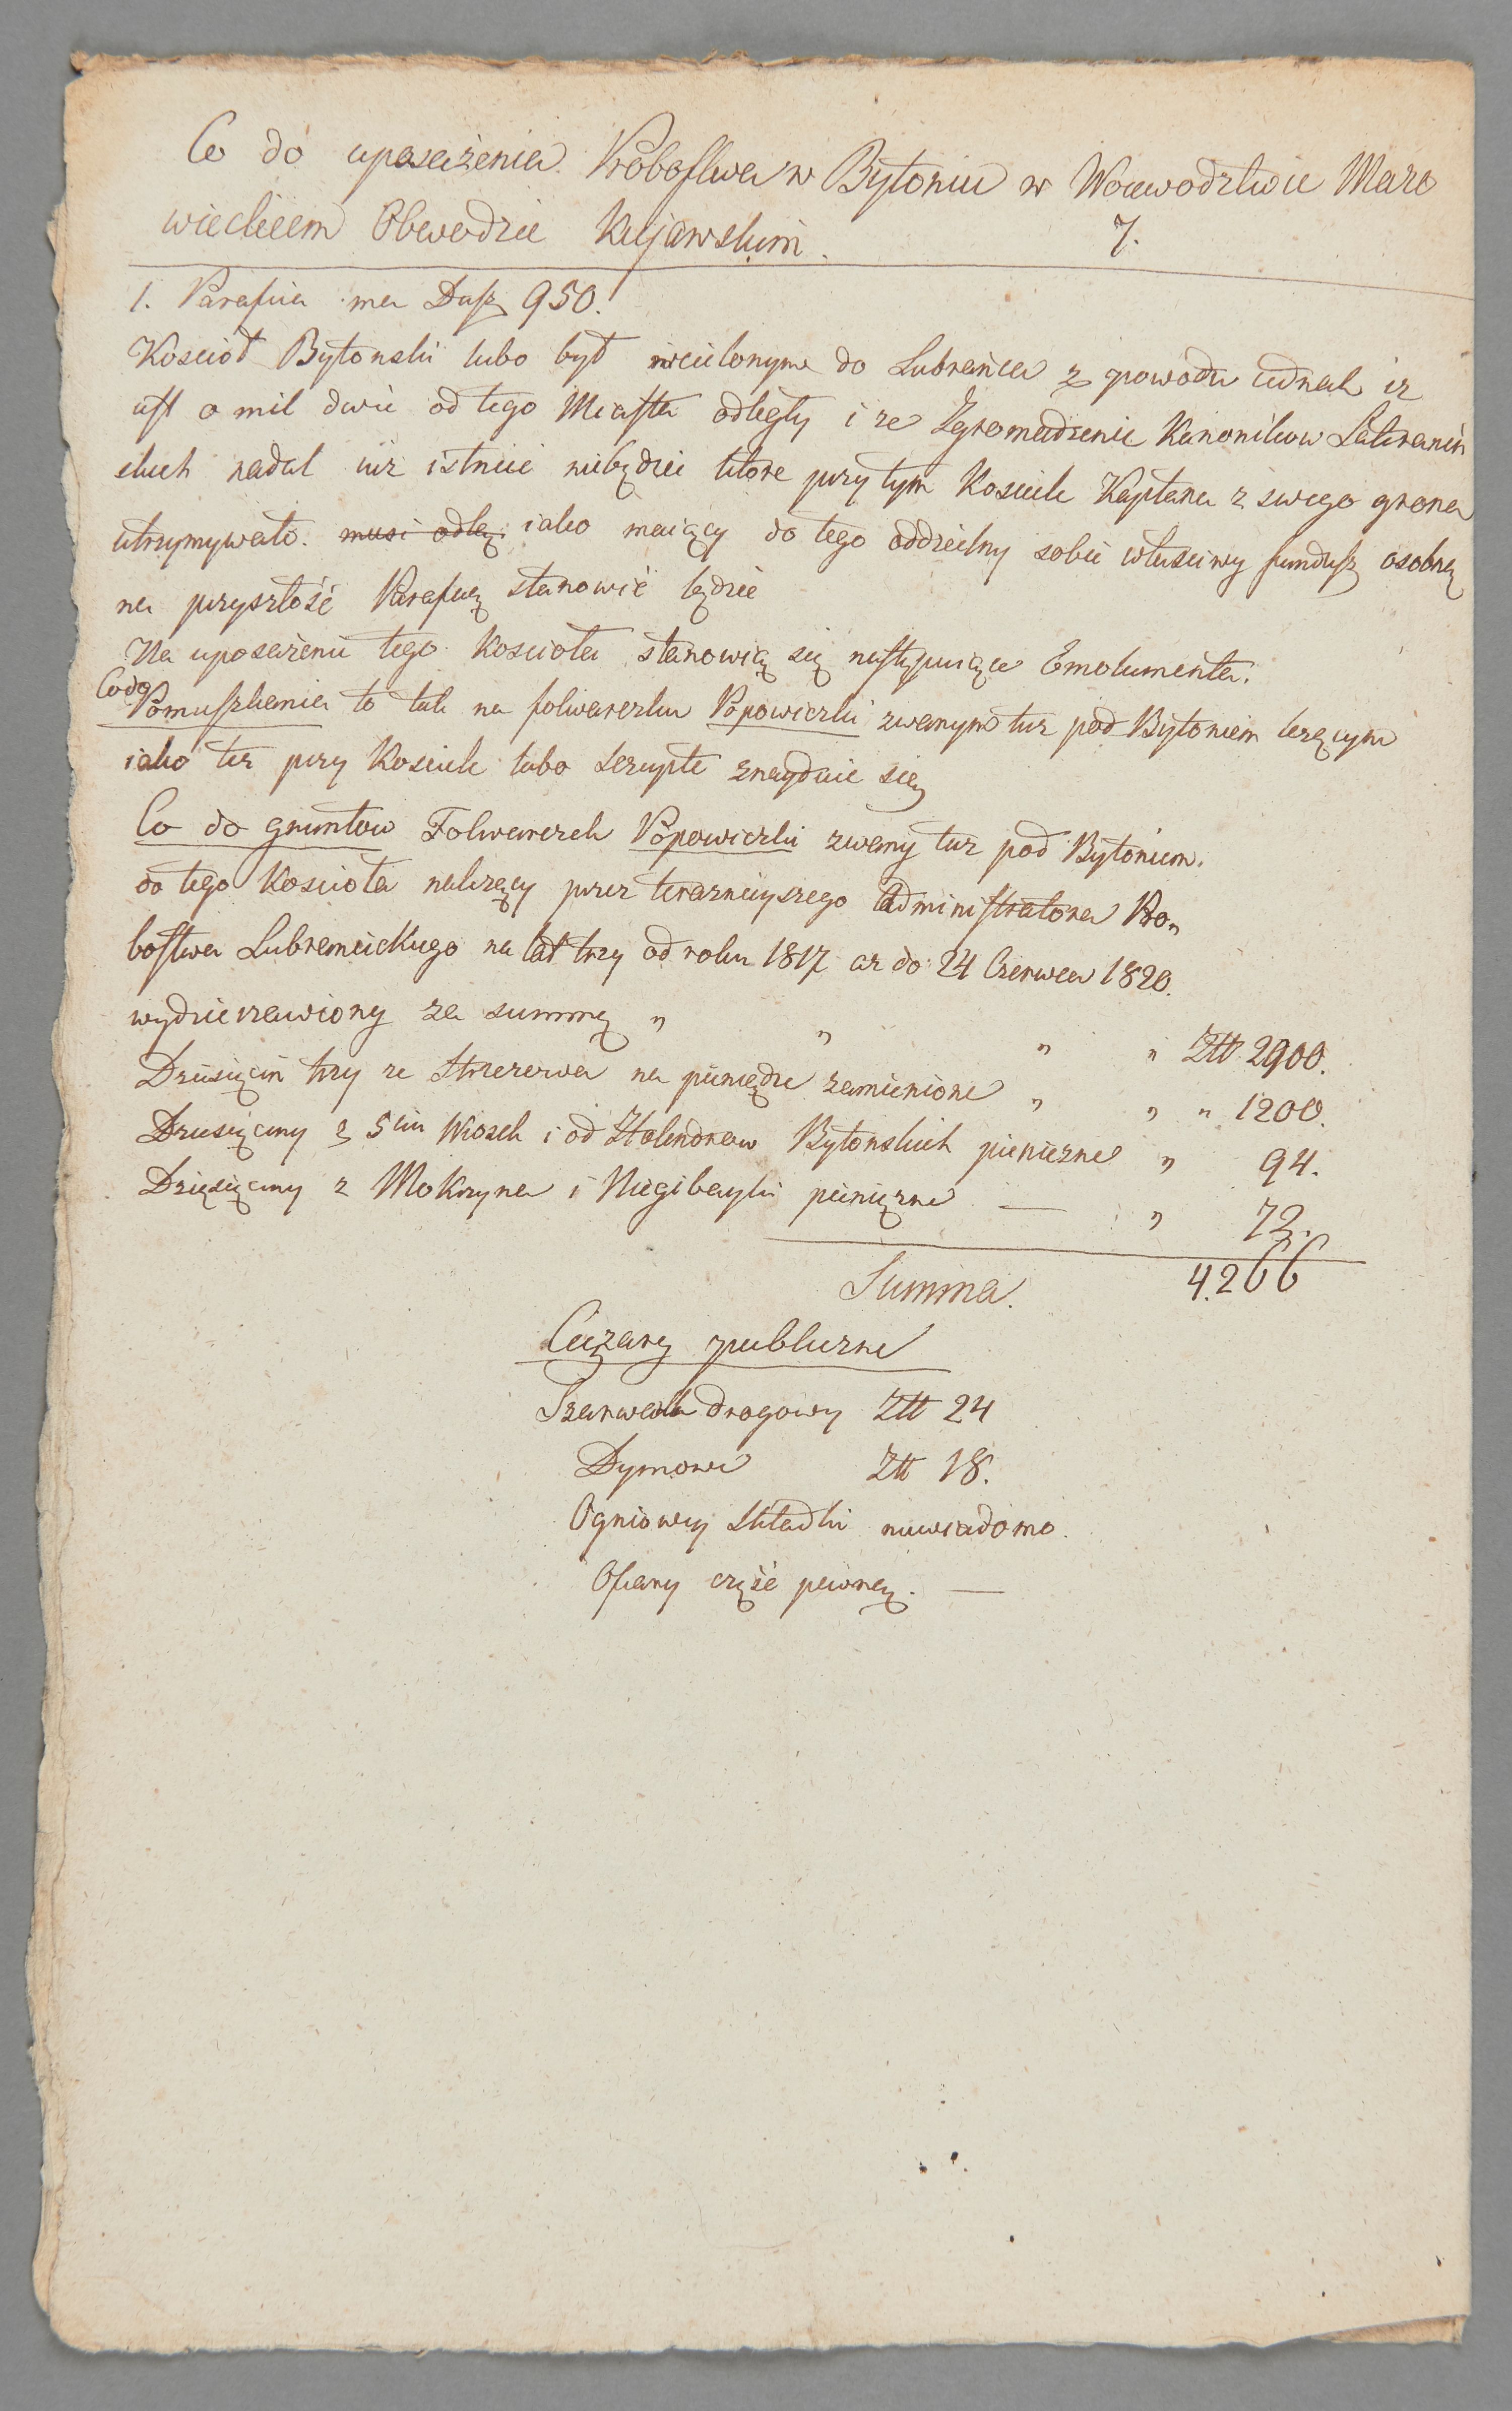 Co do uposażenia Probostwa w Bytoniu w Woiewodztwie Mazo
wieckiem Obwodzie Kujawskim. 7.
1. Parafia ma Dusz 950.
Kościoł Bytonski lubo był wcielonym do Lubrańca z powodu iednak iz
iest o mil dwie od tego Miasta odległy i ze Zgromadzenie Kanonikow Lateranen
skich nadal iuz istnieć niebędzie ktore przy tym Kosciele Kapłana z swego grona
utrzymywało. musi odłą: iako maiący do tego oddzielny sobie właściwy fundusz osobną
na przyszłość Parafią stanowić będzie
Na uposazenie tego Kosciola stanowią się następuiące Emolumenta.
Co do
Pomieszkania to tak na folwarczku Popowiczki zwanym tuz pod Bytoniem lezącym
iako tez przy Kosciele lubo szczupłe znayduie się
Co do gruntow Folwarczek Popowiczki zwany tuz pod Bytoniem.
do tego Kościoła nalezący przez teraznieyszego Administratora Pro„
bostwa Lubranieckiego na lat trzy od roku 1817 az do 24 Czerwca 1820.
wydzierzawiony za summę „ „ „ „ Złł 2900.
Dziesięcin trzy ze Strzerzewa na pieniądze zamienione „ „ „ 1200.
Dziesięciny z 5ciu Wiosek i od Holendrow Bytonskich pieniezne „ 94.
Dzięsięciny z Mokzyna i Niegibaylu pienięzne — „ 72.
Summa. 4.266
Cięzary publiczne
Szarwark drogowy Złł 24
Dymowe Złł 18.
Ogniowey składki niewiadomo.
Ofiary część pewną. —